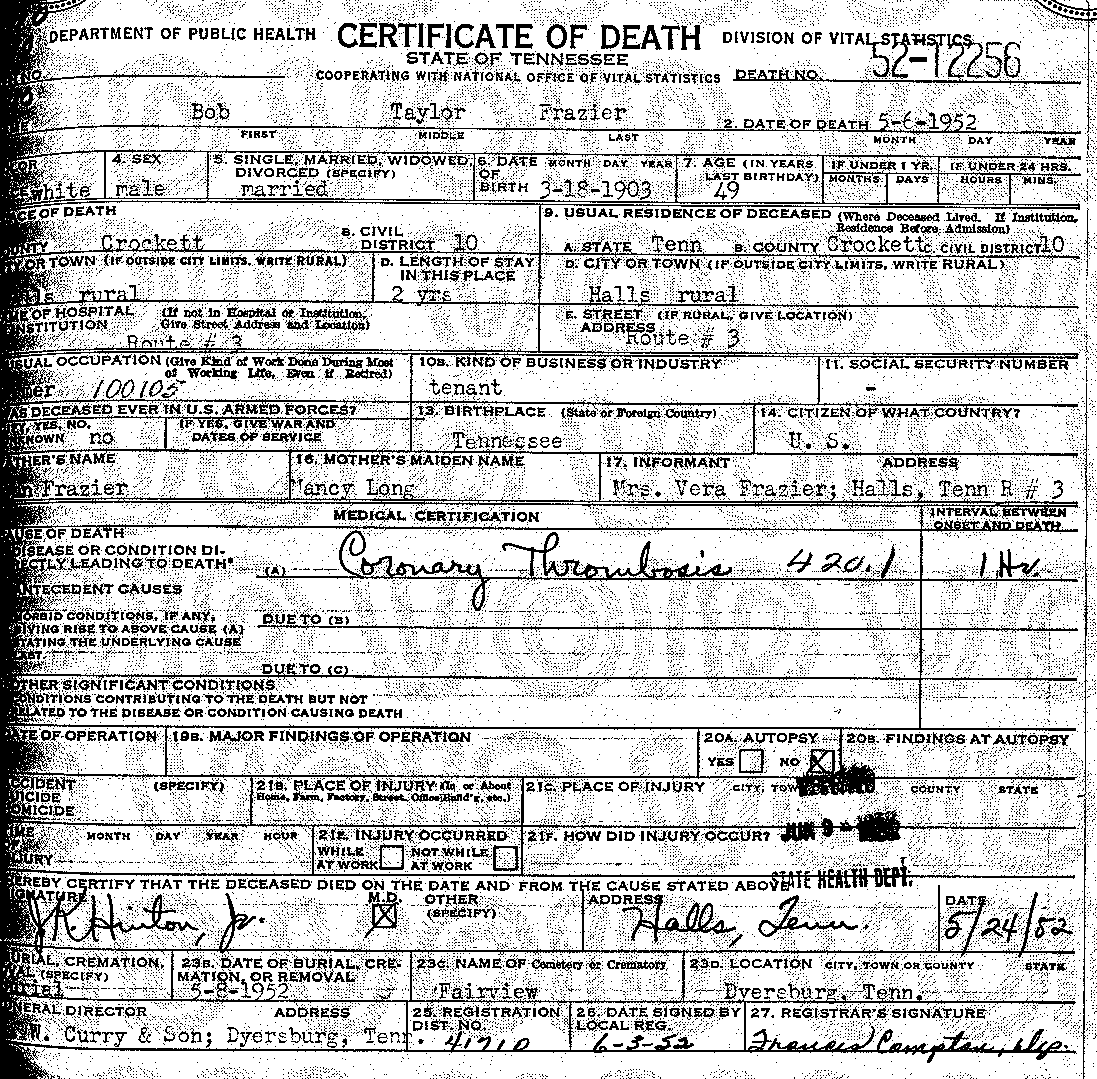 DEPARTMENT OF PUBLIC HEALTH CERTIFICATE OF DEATH DIVISION OF VITAL STATISTICS
STATE OF TENNESSEE
COOPERATING WITH NATIONAL OFFICE OF VITAL STATISTICS DEATH NO. 52-12256
NO.
Bob Taylor Frazier 2. DATE OF DEATH 5-6-1952
FIRST MIDDLE LAST MONTH DAY YEAR
4. SEX 5. SINGLE, MARRIED, WIDOWED, 6. DATE MONTH DAY YEAR 7. AGE (IN YEARS IF UNDER 1 YR. IF UNDER 24 HRS.
DIVORCED (SPECIFY) OF LAST BIRTHDAY) MONTHS DAYS HOURS MINS.
white male married BIRTH 3-18-1903 49
CE OF DEATH 9. USUAL RESIDENCE OF DECEASED (Where Deceased Lived. If Institution,
Residence Before Admission)
UNTY Crockett B. CIVIL DISTRICT 10 A. STATE Tenn B. COUNTY Crockett C. CIVIL DISTRICT 10
Y OR TOWN (IF OUTSIDE CITY LIMITS, WRITE RURAL) D. LENGTH OF STAY D. CITY OR TOWN (IF OUTSIDE CITY LIMITS, WRITE RURAL)
IN THIS PLACE
lls rural 2 yrs Halls rural
ME OF HOSPITAL (If not in Hospital or Institution, E. STREET (IF RURAL, GIVE LOCATION)
NSTITUTION Give Street Address and Location) ADDRESS
Route # 3 Route # 3
SUAL OCCUPATION (Give Kind of Work Done During Most 10B. KIND OF BUSINESS OR INDUSTRY 11. SOCIAL SECURITY NUMBER
of Working Life, Even if Retired)
mer 100105 tenant -
AS DECEASED EVER IN U.S. ARMED FORCES? 13. BIRTHPLACE (State or Foreign Country) 14. CITIZEN OF WHAT COUNTRY?
YES, NO, IF YES, GIVE WAR AND
KNOWN no DATES OF SERVICE Tennessee U. S.
ATHER'S NAME 16. MOTHER'S MAIDEN NAME 17. INFORMANT ADDRESS
n Frazier Nancy Long Mrs. Vera Frazier; Halls, Tenn R # 3
MEDICAL CERTIFICATION INTERVAL BETWEEN
ONSET AND DEATH
AUSE OF DEATH
DISEASE OR CONDITION DI-
RECTLY LEADING TO DEATH* (A) Coronary Thrombosis 420.1 1 Hr.
ANTECEDENT CAUSES
MORBID CONDITIONS, IF ANY, DUE TO (B)
GIVING RISE TO ABOVE CAUSE (A)
STATING THE UNDERLYING CAUSE
LAST. DUE TO (C)
OTHER SIGNIFICANT CONDITIONS
CONDITIONS CONTRIBUTING TO THE DEATH BUT NOT
RELATED TO THE DISEASE OR CONDITION CAUSING DEATH
ATE OF OPERATION 19B. MAJOR FINDINGS OF OPERATION 20A. AUTOPSY 20B. FINDINGS AT AUTOPSY
YES NO X
CCIDENT (SPECIFY) 21B. PLACE OF INJURY (In or About 21C. PLACE OF INJURY CITY, TOWN COUNTY STATE
UICIDE Home, Farm, Factory, Street, Office Build'g, etc.)
OMICIDE
IME MONTH DAY YEAR HOUR 21E. INJURY OCCURRED 21F. HOW DID INJURY OCCUR? JUN 9
NJURY WHILE AT WORK NOT WHILE AT WORK
HEREBY CERTIFY THAT THE DECEASED DIED ON THE DATE AND FROM THE CAUSE STATED ABOVE STATE HEALTH DEPT.
SIGNATURE M.D. OTHER ADDRESS DATE
(SPECIFY)
J K Hinton, Jr. X Halls, Tenn. 5/24/52
URIAL, CREMATION, 23B. DATE OF BURIAL, CRE- 23C. NAME OF Cemetery or Crematory 23D. LOCATION CITY, TOWN OR COUNTY STATE
VAL (SPECIFY) MATION, OR REMOVAL
urial 5-8-1952 Fairview Dyersburg, Tenn.
NERAL DIRECTOR ADDRESS 25. REGISTRATION 26. DATE SIGNED BY 27. REGISTRAR'S SIGNATURE
DIST. NO. LOCAL REG.
W. Curry & Son; Dyersburg, Tenn. 41710 6-3-52 Frances Compton, Dep.